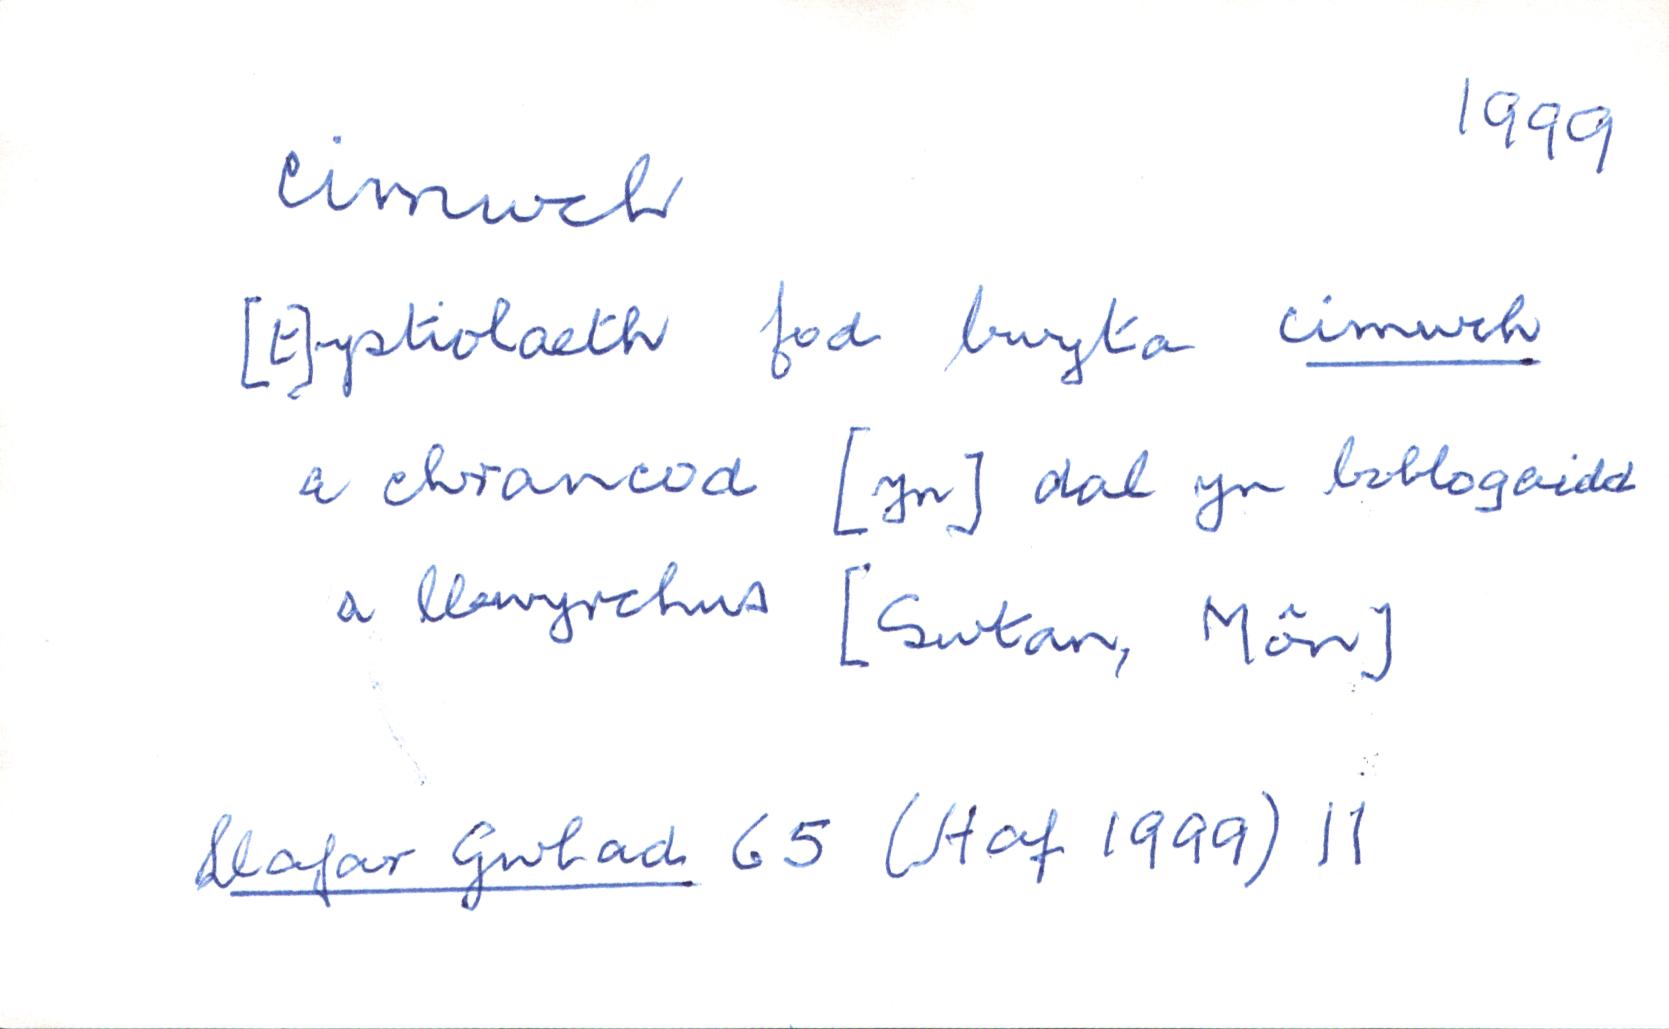 1999
cimwch
[t]ystiolaeth fod bwyta cimwch
a chrancod [yn] dal yn boblogaidd
a llewyrchus [Swtan, Môn]
Llafar Gwlad 65 (Haf 1999) 11